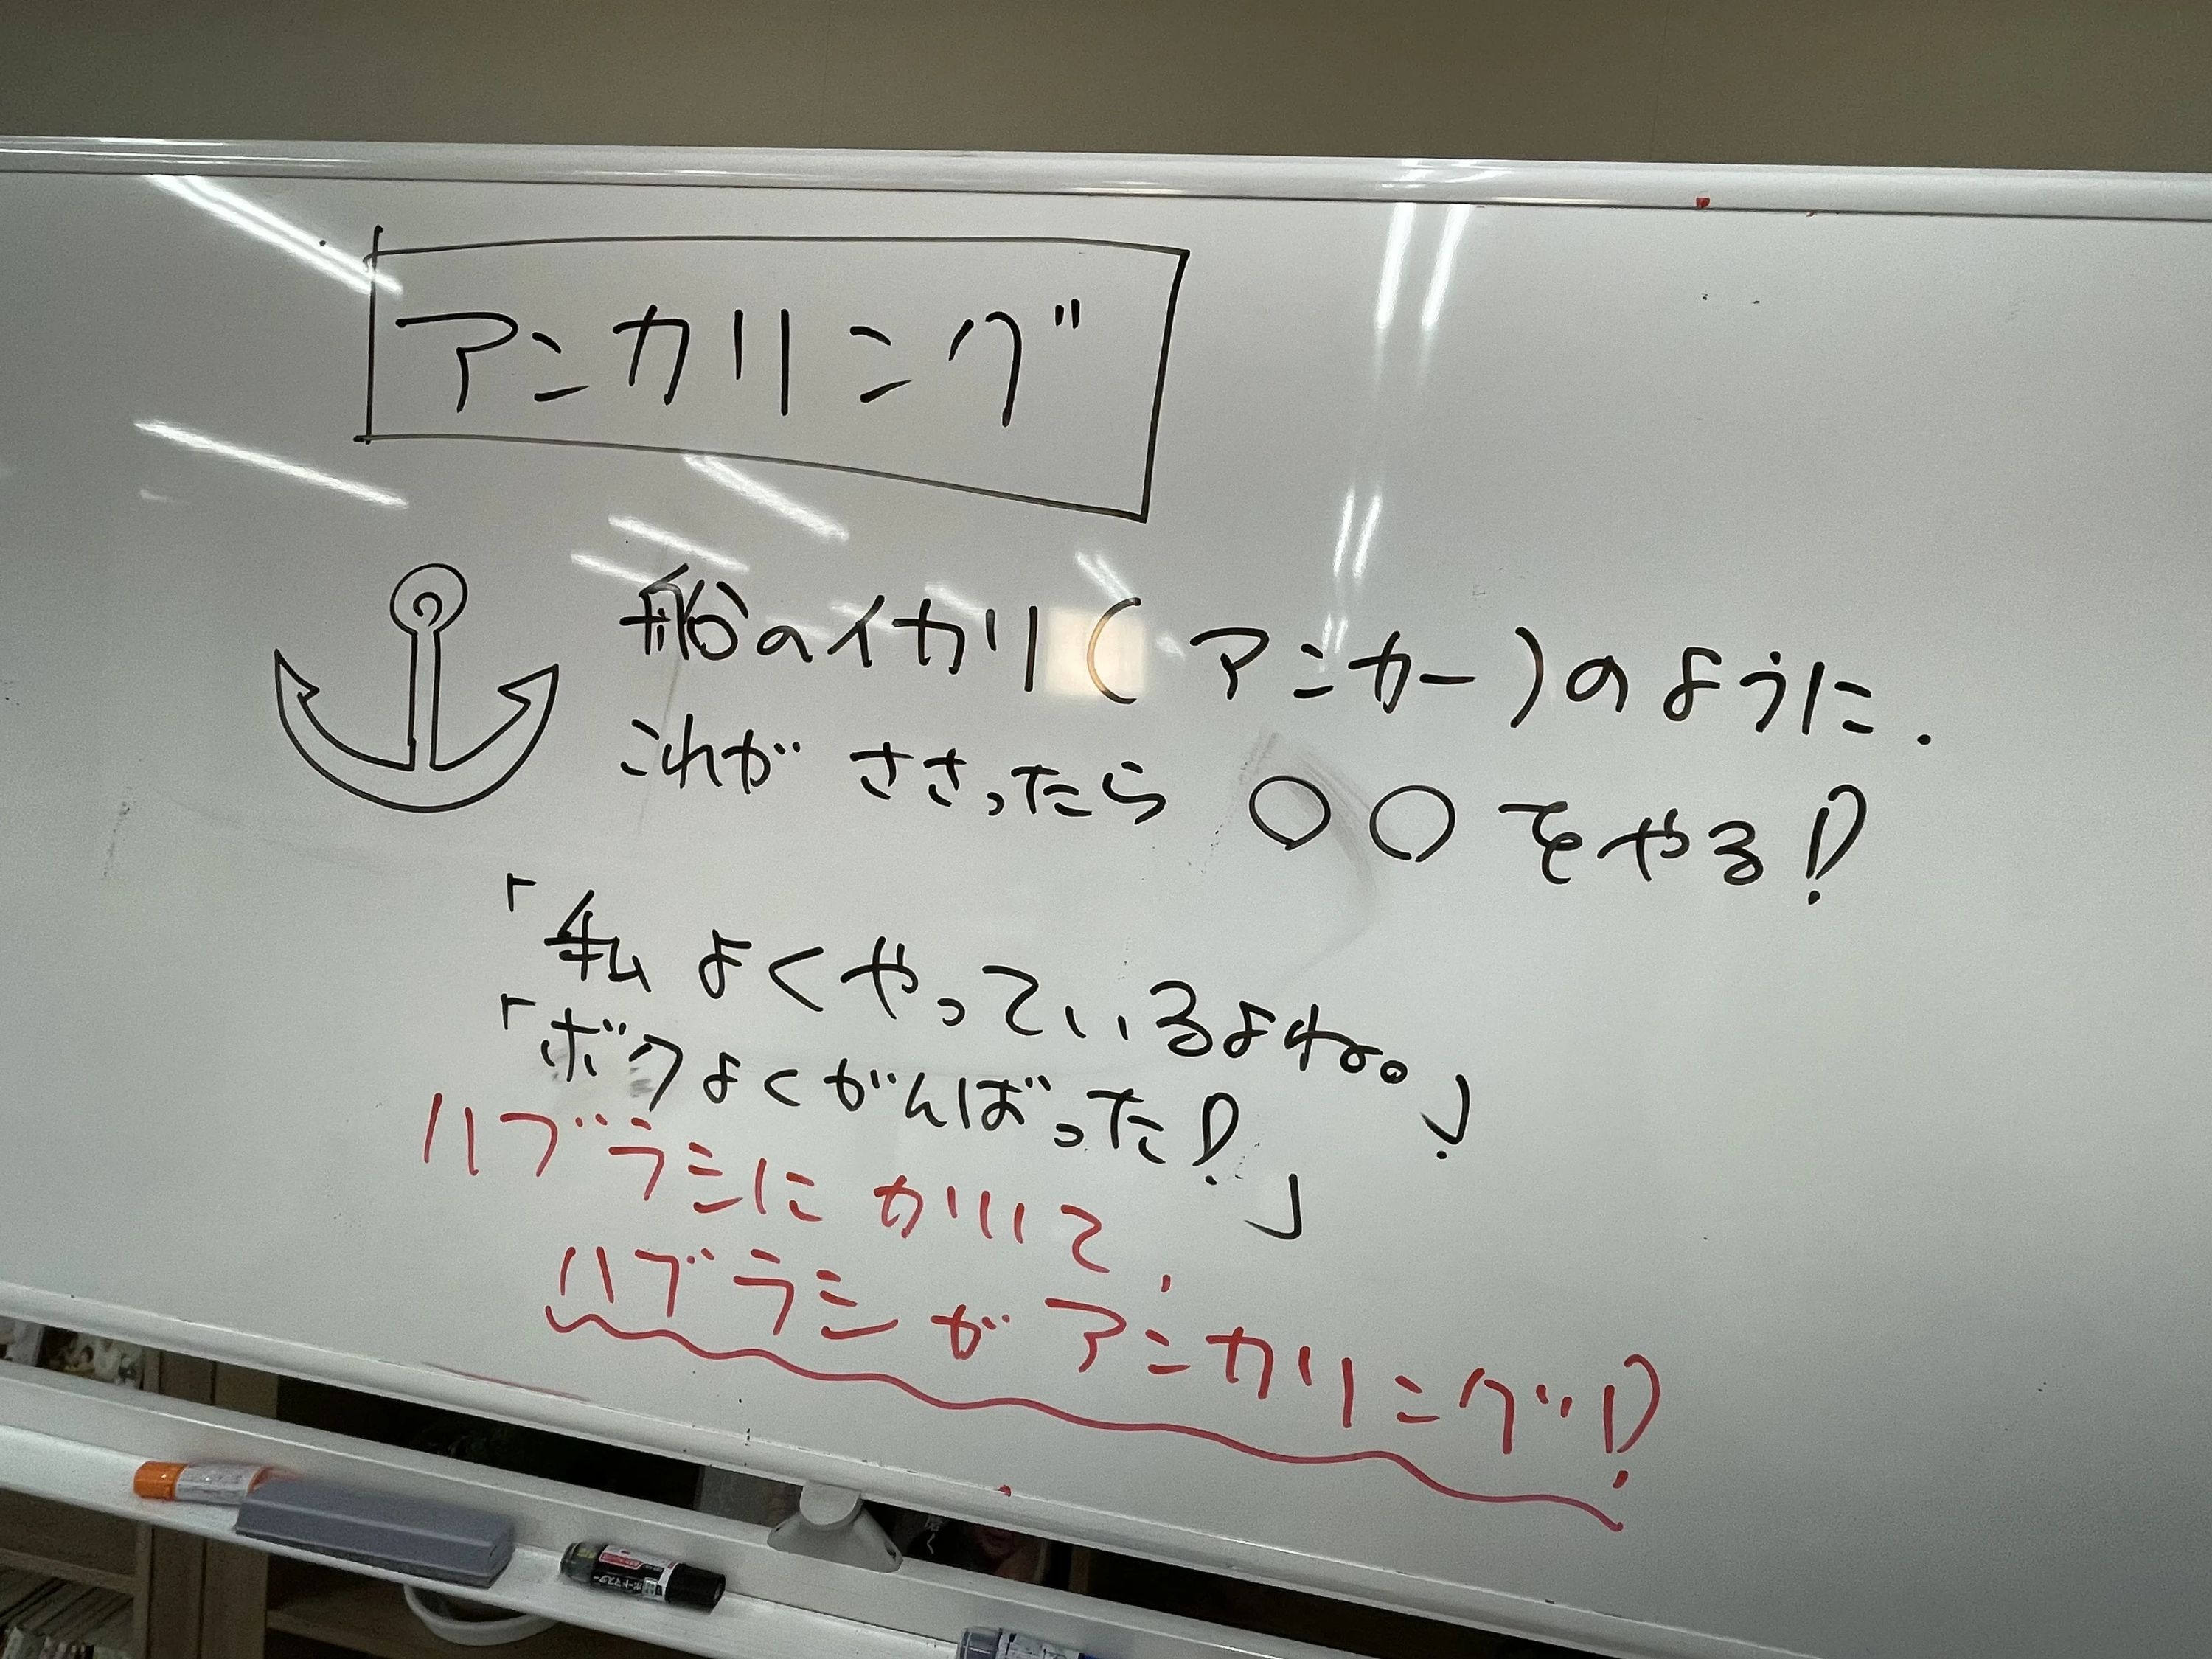 アンカリング
船のイカリ(アンカー)のように.
これが ささったら ○○をやる!
「私 よくやっているよね。」
「ボクよくがんばった!」
ハブラシに かいて,
ハブラシが アンカリング!
ボードマスター